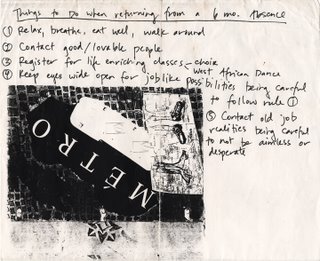 Things to Do when returning from a 6 mo. Absence
① Relax, breathe, eat well, walk around
② Contact good/lovable people
③ Register for life enriching classes – choir
West African Dance
④ Keep eyes wide open for joblike possibilities being careful
to follow rule ①
⑤ Contact old job
realities being careful
to not be aimless or
desperate
MÉTRO